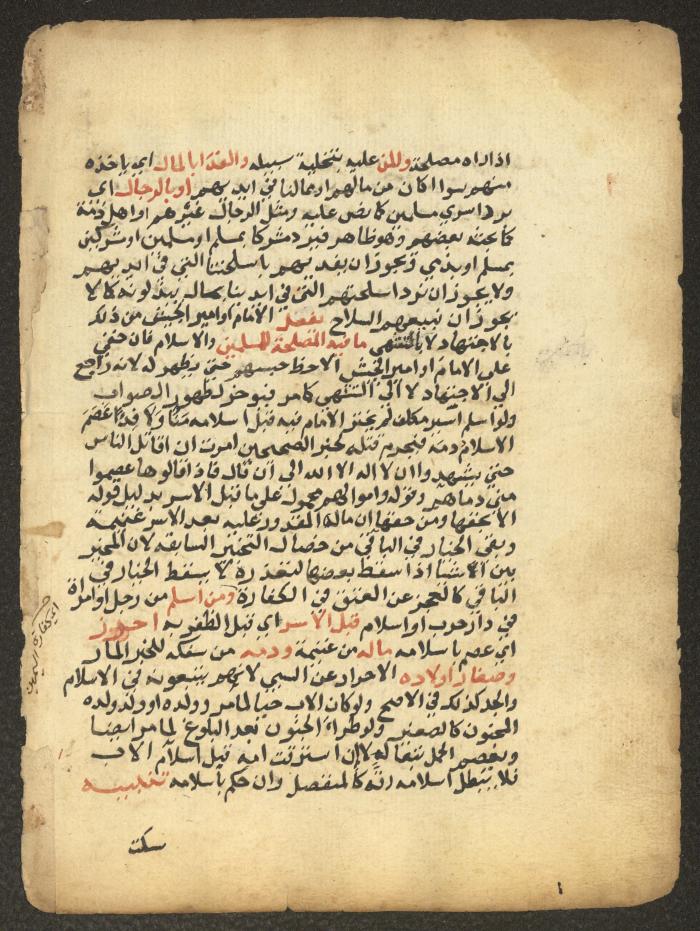 اذا راه مصلحة والمن عليه بتخلية سبيله والفدا بالمال اي ياخذه
منهم سوا اكان من مالهم او مالنا في ايديهم او بالرجال اي
برد اسري مسلمين كما نص عليه ومثل الرجال غيرهم او اهل ذمة
كما بحثه بعضهم وهو ظاهر فيرد مشركا بمسلم او مسلمين او مشركين
بمسلم او بذمي ويجوز ان يفديهم باسلحتنا التي في ايديهم
ولا يجوز ان نرد اسلحتهم التي في ايدينا بمال يبذلونه كما لا
يجوز ان نبيعهم السلاح يفعل الامام او امير الجيش من ذلك
بالاجتهاد لا بالتشهي ما فيه المصلحة للمسلمين والاسلام فان خفي
على الامام او امير الجيش الاحظ حبسهم حتى يظهر له لانه راجع
الي الاجتهاد لا الي التشهي كما مر فيوخر لظهور الصواب
ولو اسلم اسير مكلف لم يختر الامام فيه قبل اسلامه منا ولا فدا عصم
الاسلام دمه فيحرم قتله لخبر الصحيحين امرت ان اقاتل الناس
حتي يشهدوا ان لا اله الا الله الي ان قال فاذا قالوها عصموا
مني دماهم وقوله واموالهم محمول علي ما قبل الاسر بدليل قوله
الا بحقها ومن حقها ان ماله المقدور عليه بعد الاسر غنيمة
وبقي الخيار في الباقي من خصال التخيير السابقة لان المخير
بين اشيا اذا سقط بعضها لتعذره لا يسقط الخيار في
الباقي كالعجز عن العتق في الكفارة ومن اسلم من رجل او امراة
في دار حرب او اسلام قبل الاسر اي قبل الظفر به احرز
اي عصم باسلامه ماله من غنيمة ودمه من سفكه للخبر المار
وصغار اولاده الاحرار عن السبي لانهم يتبعونه في الاسلام
والجد كذلك في الاصح ولو كان الاب حيا لما مر وولده او ولد ولده
المجنون كالصغير ولو طرا الجنون بعد البلوغ لما مر ايضا
ويعصم الحمل تبعا له لا ان استرقت امه قبل اسلام الاب
فلا يبطل اسلامه رقه كالمنفصل وان حكم باسلامه تنبيه
سكت